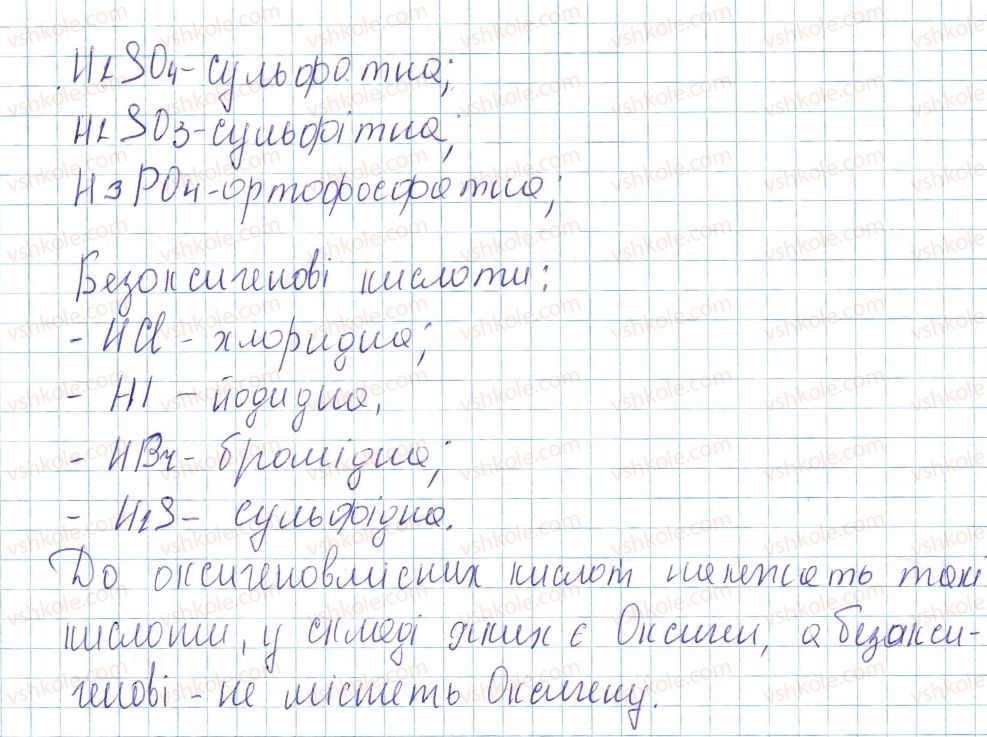 H2SO4-сульфатна;
H2SO3-сульфітна;
H3PO4-ортофосфатна;
Безоксигенові кислоти:
- HCl - хлоридна;
- HI - йодидна,
- HBr- бромідна;
- H2S- сульфідна.
До оксигеновмісних кислот належать такі
кислоти, у складі яких є Оксиген, а безокси-
генові - не містять Оксигену.